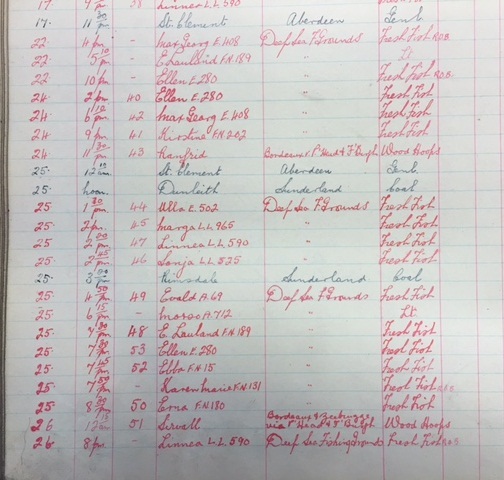 17. 9 pm 38 Linnea L.L. 590 " Fresh Fish
17. 11 30 pm St. Clement Aberdeen Genl.
22 4 pm - Max Georg E 408 Deep Sea F. Grounds Fresh Fish R.O.B.
22 5 10 pm - E Lauland F.N. 189 " Lt.
22 10 pm - Ellen E. 280 " Fresh Fish R.O.B.
24 2 pm 40 Ellen E. 280 " Fresh Fish
24 6 10 pm 42 Max Georg E 408 " Fresh Fish
24 9 pm 41 Kirstine F.N. 202 " Fresh Fish
24 11 30 pm 43 Ranfrid Bordeaux & P. Head & F'Burgh Wood Hoops
25. 12 St. Clement Aberdeen Genl.
25. noon. Dunleith Sunderland Coal
25 1 30 pm 44 Ulla E. 502 Deep Sea F. Grounds Fresh Fish
25 2 pm. 45 Marga L.L. 965 " Fresh Fish
25 2 pm 47 Linnea L.L. 590 " Fresh Fish
25 2 45 pm 46 Sonja L.L. 525 " Fresh Fish
25. 3 pm Rinsdale Sunderland Coal
25 4 50 pm 49 Ewald A. 69 Deep Sea F. Grounds Fresh Fish
25 6 15 pm - Morso A. 712 " Lt.
25. 7 30 pm 48 E. Lauland F.N. 189 " Fresh Fish
25. 7 pm 53 Ellen E. 280 " Fresh Fish
25. 7 45 pm 52 Ebba F.N. 15 " Fresh Fish
25. 7 50 pm - Karen Marie F.N. 131 " Fresh Fish R.O.B.
25 8 pm 50 Erna F.N. 130 " Fresh Fish
26 12 51 Sirvall Bordeaux & Zeebrugge via P. Head & F'Burgh Wood Hoops
26. 8 pm - Linnea L.L. 590 Deep Sea Fishing Grounds Fresh Fish R.O.B.